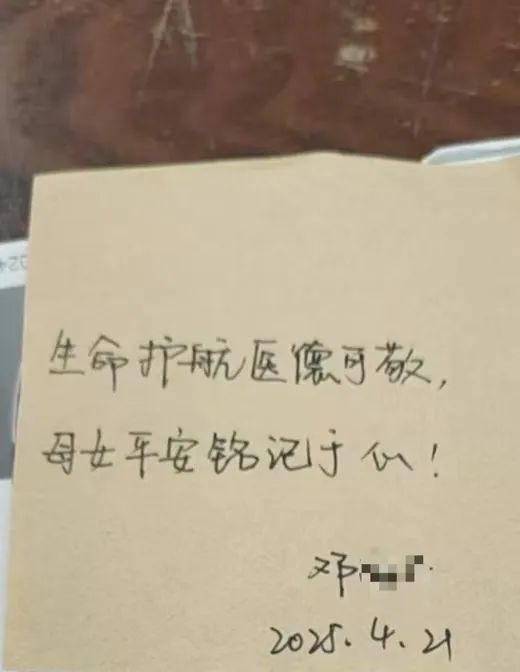 生命护航医德可敬,
母女平安铭记于心!
邓
2025.4.21